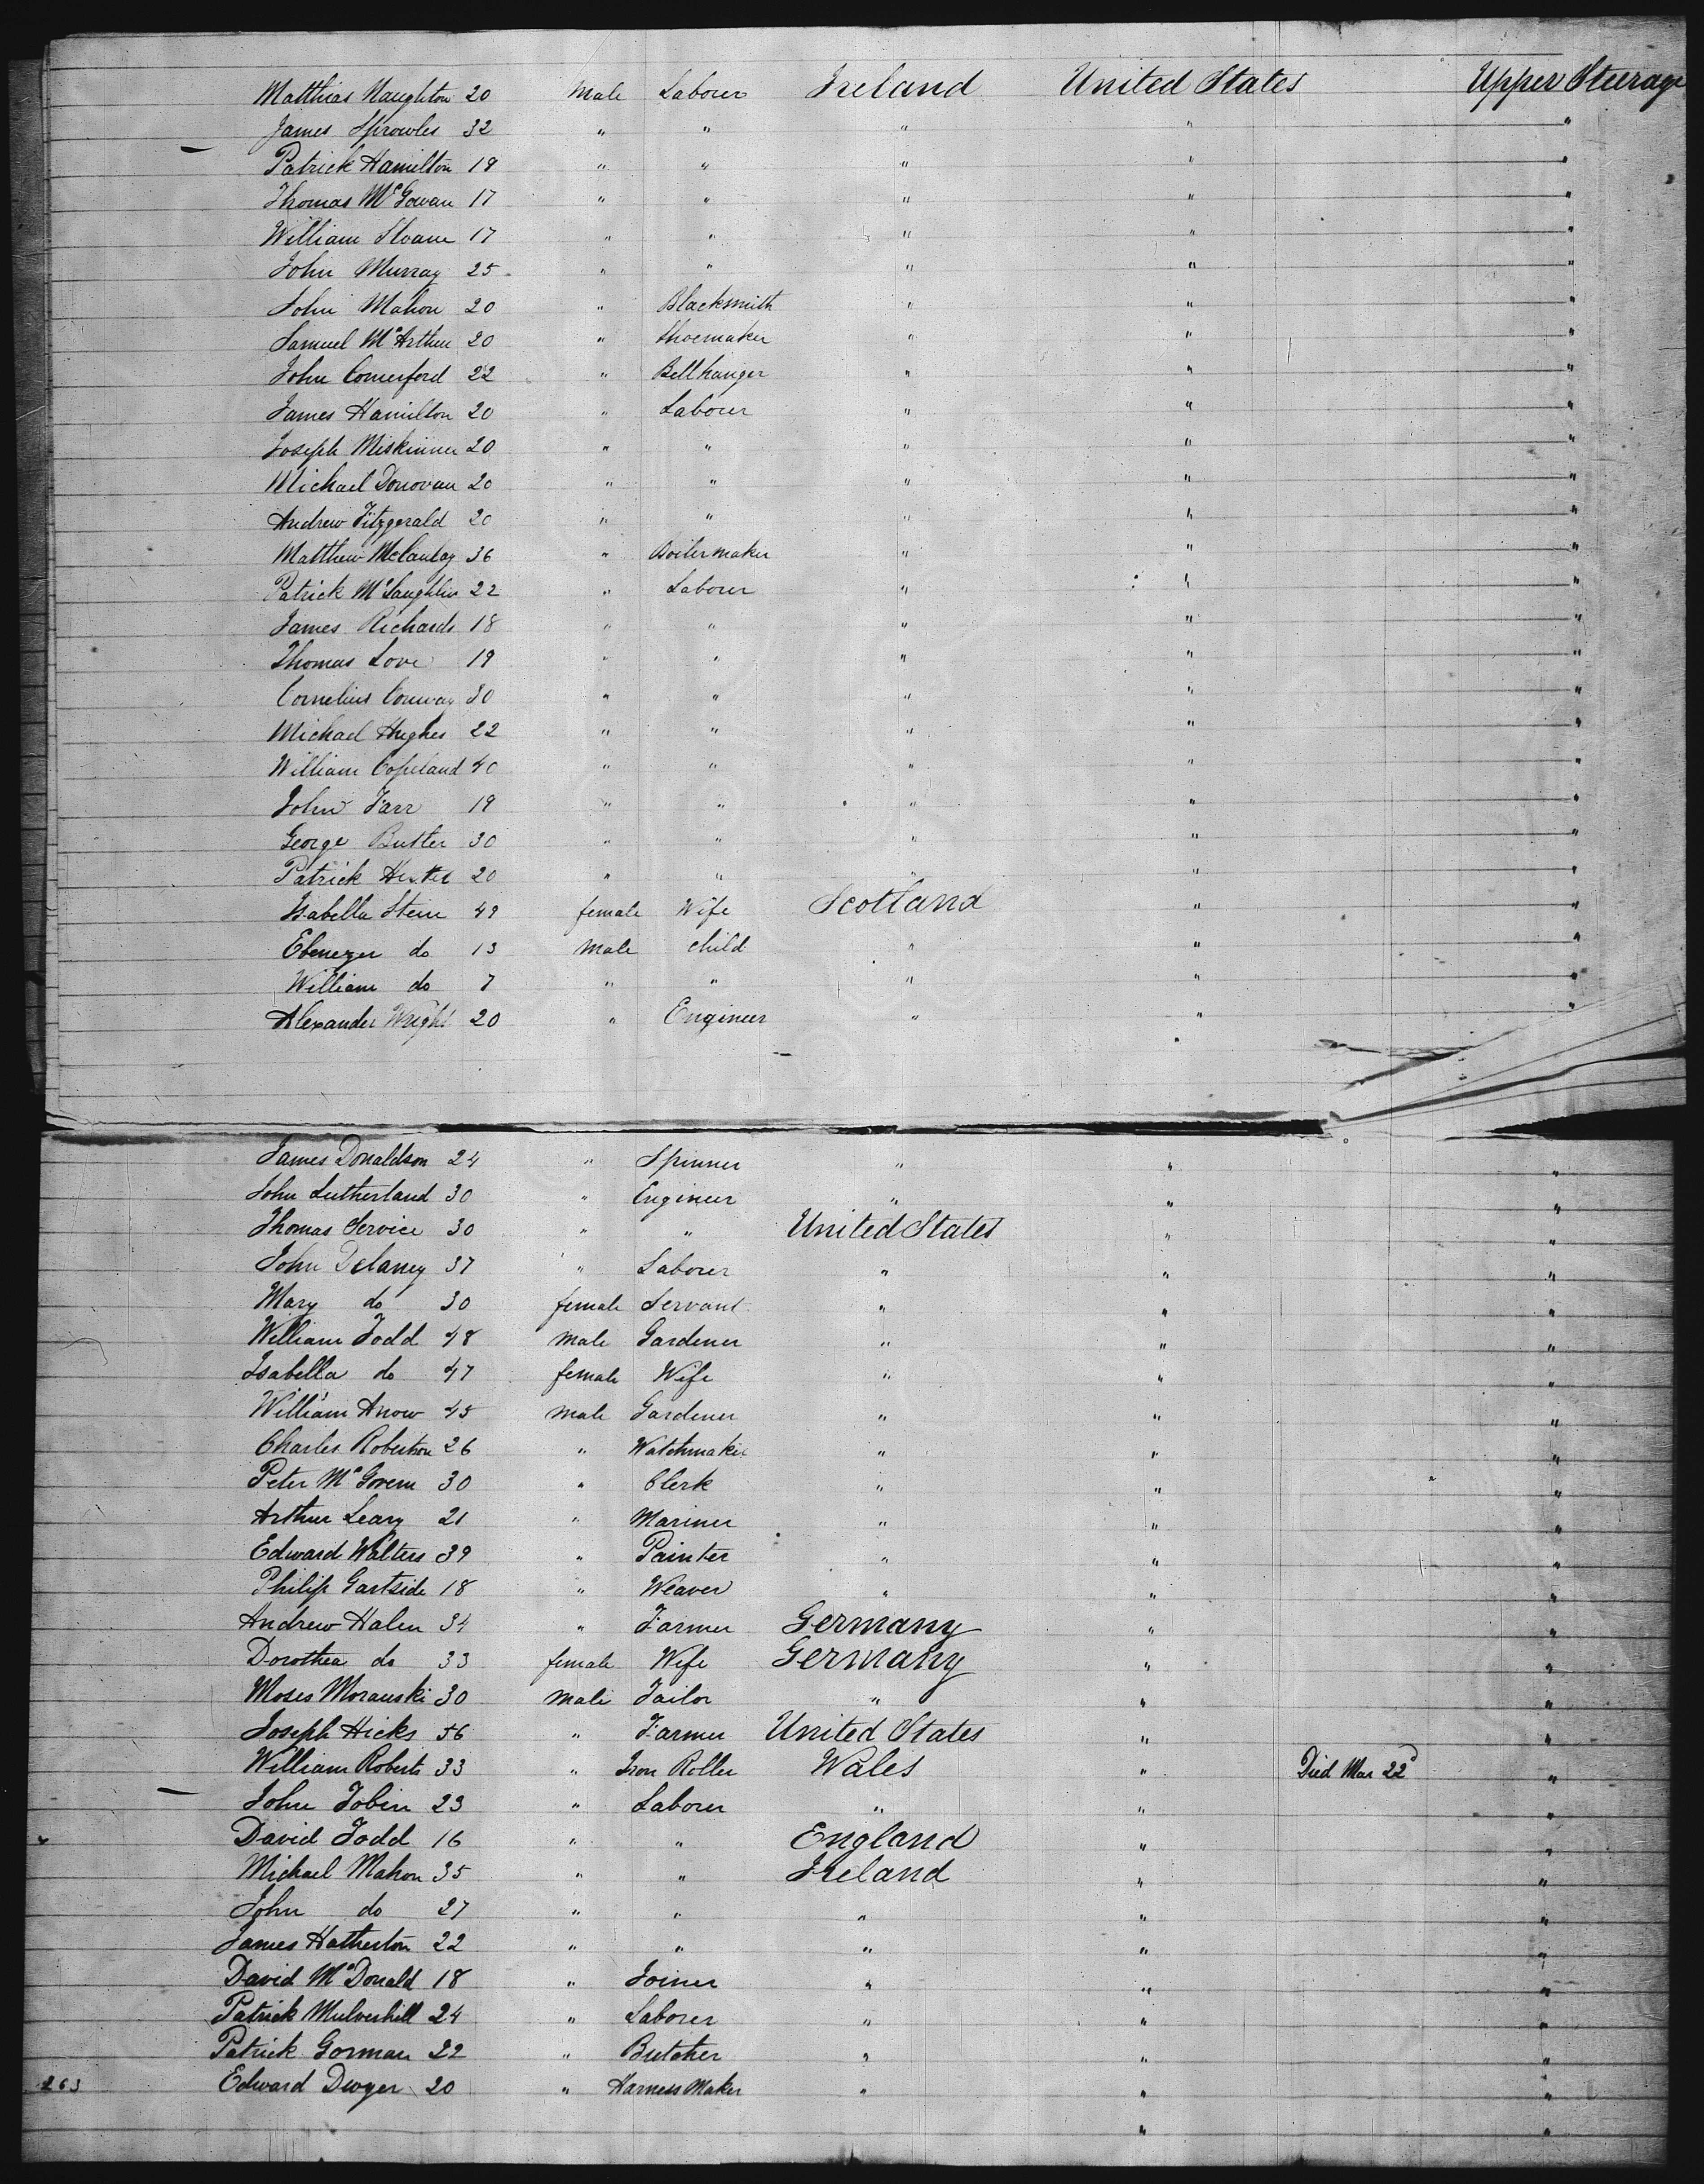 Matthias Naughton 20 Male Laborer Ireland United States Upper Steerage
James Sprowles 32 " " " " "
Patrick Hamilton 18 " " " " "
Thomas McGowan 17 " " " " "
William Sloane 17 " " " " "
John Murray 25 " " " " "
John Mahon 20 " Blacksmith " " "
Samuel McArthur 20 " Shoemaker " " "
John Comerford 22 " Bellhanger " " "
James Hamilton 20 " Laborer " " "
Joseph Miskinner 20 " " " " "
Michael Donovan 20 " " " " "
Andrew Fitzgerald 20 " " " " "
Matthew McCaulay 36 " Boilermaker " " "
Patrick McLaughlin 22 " Laborer " " "
James Richards 18 " " " " "
Thomas Love 19 " " " " "
Cornelius Conway 30 " " " " "
Michael Hughes 22 " " " " "
William Copeland 40 " " " " "
John Farr 19 " " " " "
George Butler 30 " " " " "
Patrick 20 " " " " "
Isabella Stein 49 female Wife Scotland " "
Ebenezer do 13 male child " " "
William do 7 " " " " "
Alexander Wright 20 " Engineer " " "
James Donaldson 24 " Spinner " " "
John Sutherland 30 " Engineer " " "
Thomas Service 30 " " United States " "
John Delaney 37 " Laborer " " "
Mary do 30 female Servant " " "
William Todd 48 male Gardener " " "
Isabella do 47 female Wife " " "
William 45 male Gardener " " "
Charles Robertson 26 " Watchmaker " " "
Peter McGovern 30 " Clerk " " "
Arthur Leary 21 " Mariner " " "
Edward Walters 39 " Painter " " "
Philip Gartside 18 " Weaver " " "
Andrew Halen 34 " Farmer Germany " "
Dorothea do 33 female Wife Germany " "
Moses Morauski 30 male Tailor " " "
Joseph Hicks 56 " Farmer United States " "
William Roberts 33 " Iron Roller Wales " Died Mar 22d "
John Tobin 23 " Laborer " " "
David Todd 16 " " England " "
Michael Mahon 35 " " Ireland " "
John do 27 " " " " "
James Hatherton 22 " " " " "
David McDonald 18 " Joiner " " "
Patrick Mulverhill 24 " Laborer " " "
Patrick Gorman 22 " Butcher " " "
263 Edward Dwyer 20 " Harness Maker " " "
" "